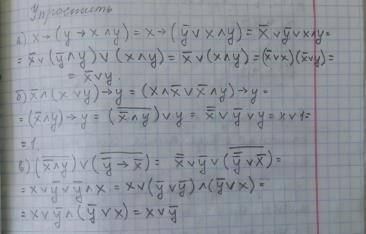 Упростить
а) x→(y→x∧y) = x→(y̅∨x∧y) = x̅∨y̅∨x∧y=
= x̅∨(y̅∧y)∨(x∧y) = x̅∨(x∧y) = (x̅∨x)(x̅∨y) =
= x̅∨y.
б) x̅∧(x∨y)→y = (x∧x̅∨x̅∧y)→y =
= (x̅∧y)→y = (\overline{x̅∧y})∨y = x̿∨y̅∨y = x∨1=
= 1.
в) (\overline{x̅∧y})∨(\overline{y̅→x̅}) = x̿∨y̅∨(\overline{y̿∨x̅}) =
= x∨y̅∨y̅∧x = x∨(y̅∨y̅)∧(y̅∨x) =
= x∨y̅∧(y̅∨x) = x∨y̅